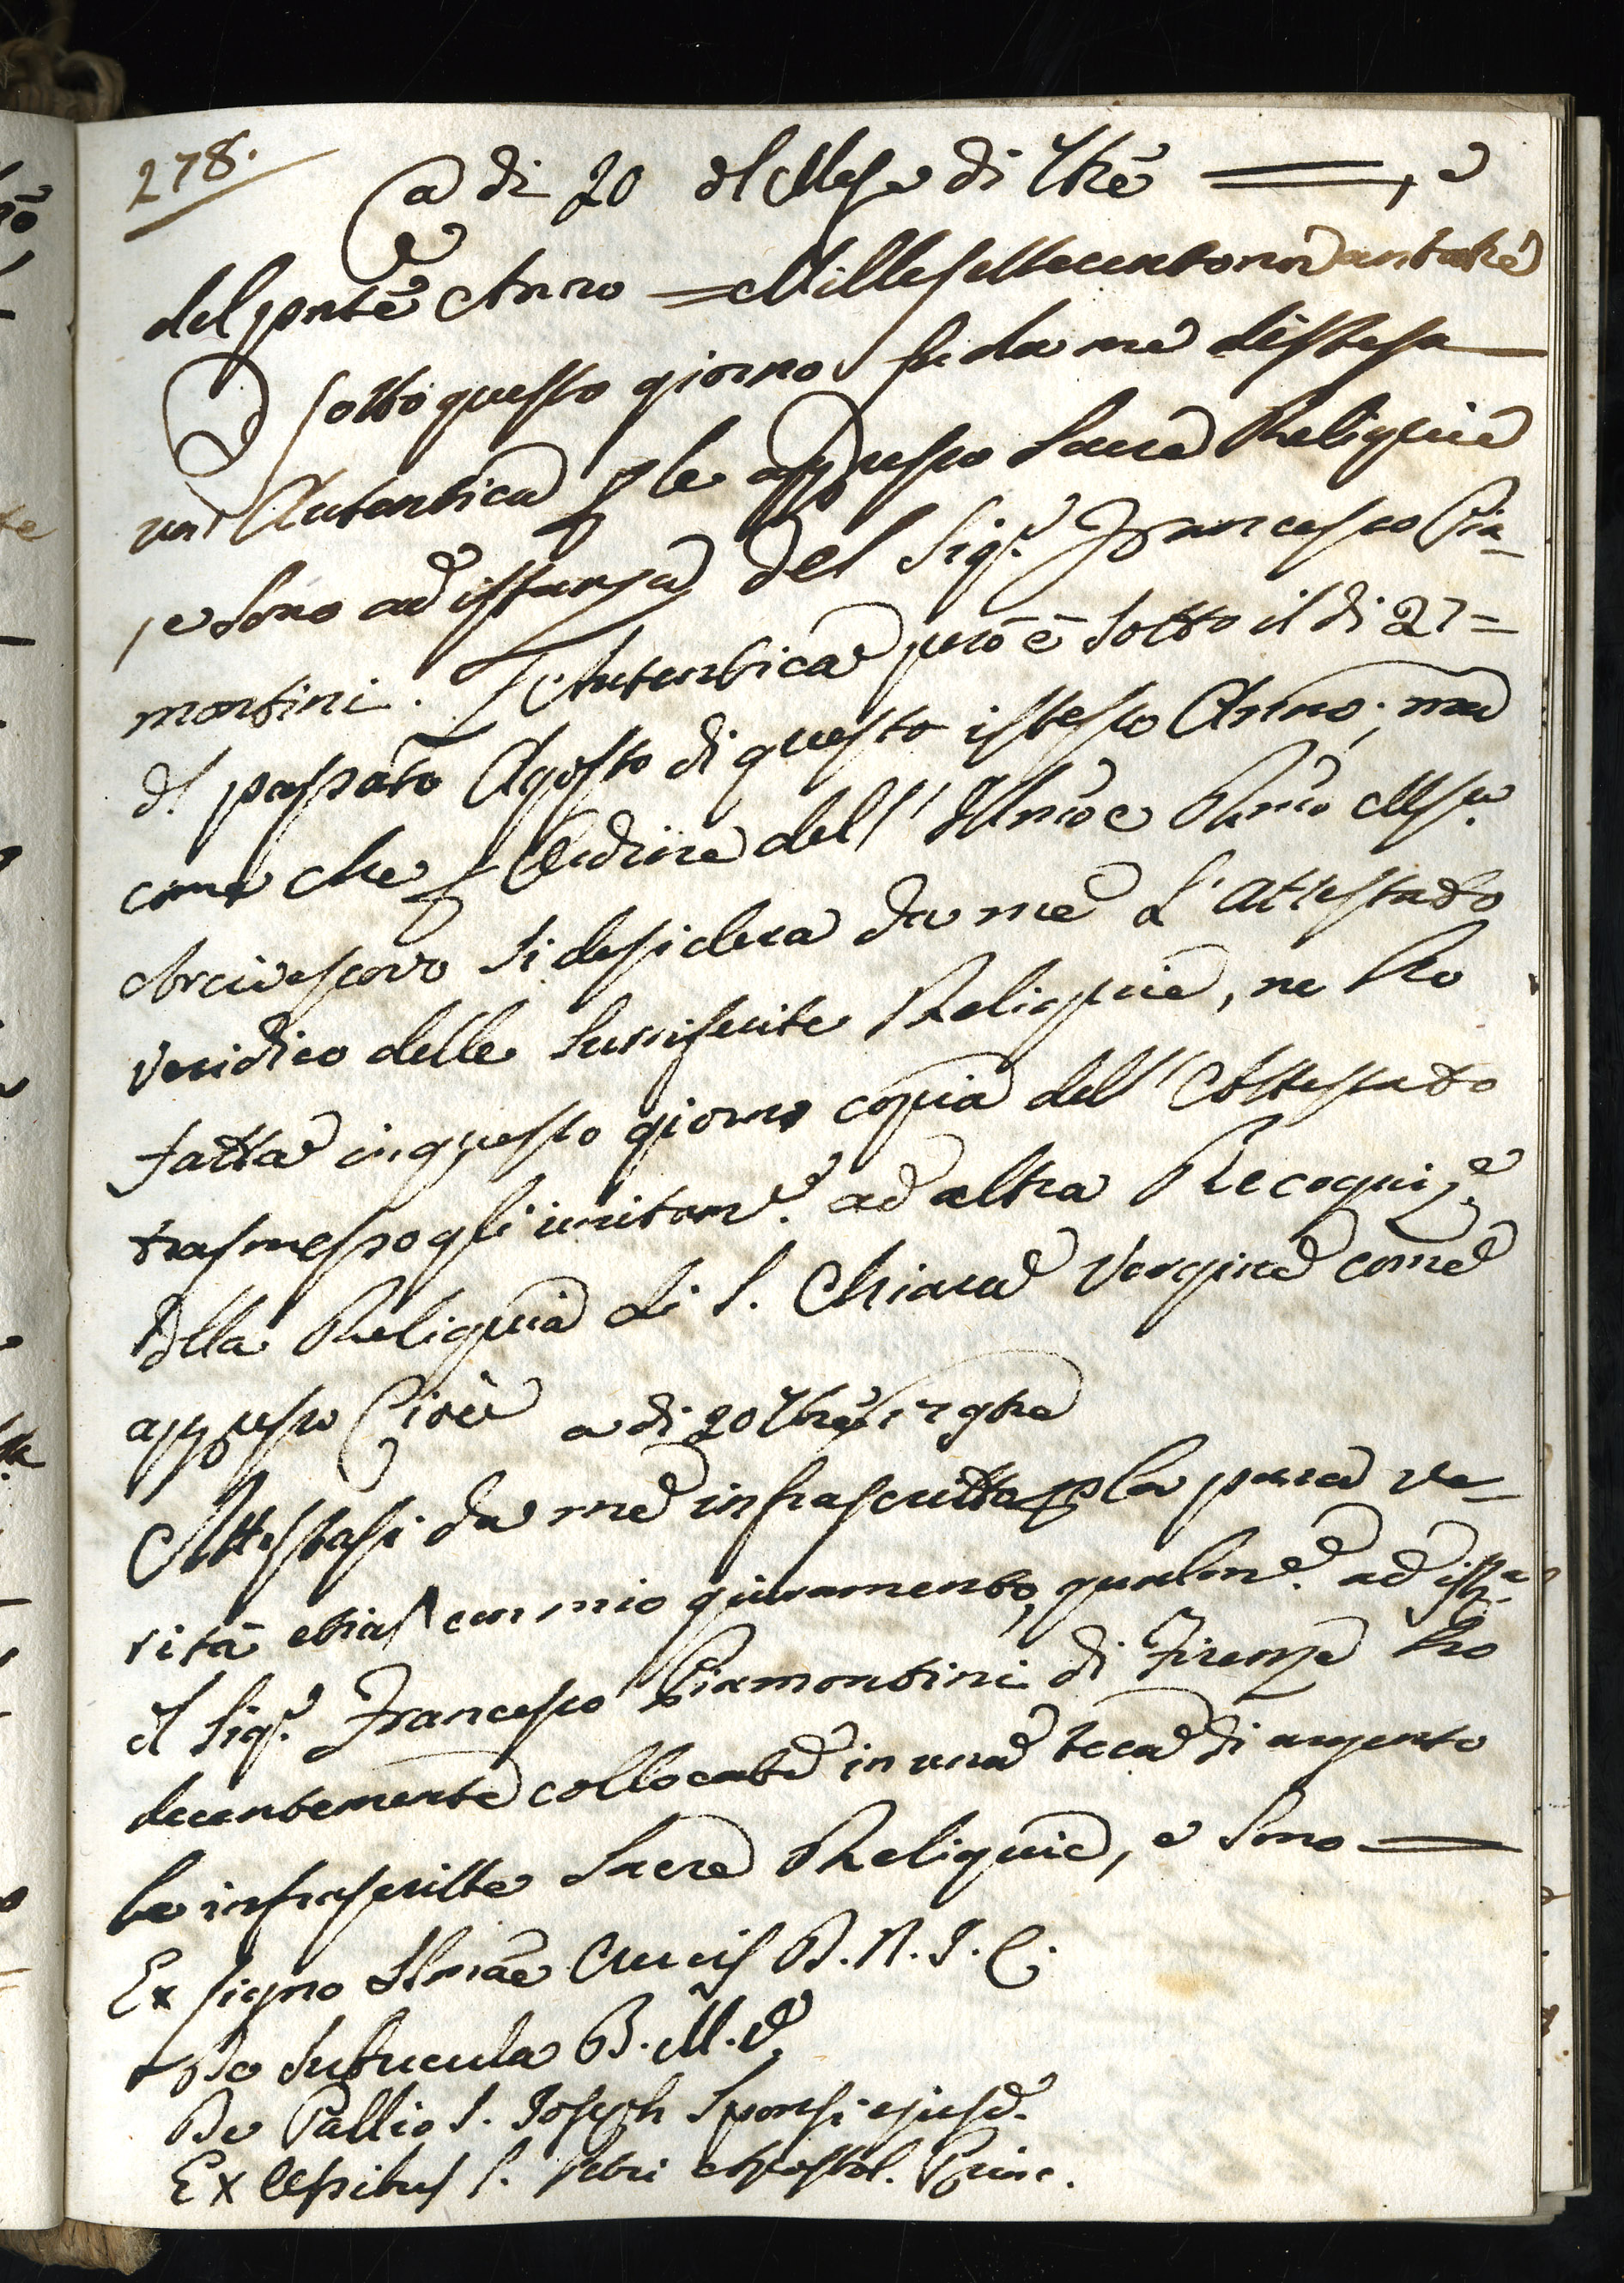 278.
a di 20 del Mese di 7bre =, e
del pñte Anno = Millesettecentonovantatré
Sotto questo giorno fu da me distesa
un Autentica p le appresso Sacre Reliquie
e sono ad istanza del Sig.r Francesco Pia-
montini. L'Autentica però è sotto il di 27 =
del passato Agosto di questo istesso Anno; ma
come che p Ordine dell' Illmo e Rmo Msr.
Arcivescovo si desidera da me L'attestato
veridico delle surriferite Reliquie, ne ho
fatta in questo giorno copia dell' Attestato
trasmessogli unitam.e ad altra Recogniz.e
della Reliquia di S. Chiara Vergine come
appresso Cioè a di 20 7bre 1793
Attestasi da me infrascritto p la pura ve-
rità etiam con mio giuramento, qualm.e ad ist.a
del Sig.r Francesco Piamontini di Firenze ho
decentemente collocate in una teca di argento
le infrascritte Sacre Reliquie, e sono =
Ex signo SSmae Crucis D. N. J. C.
De Subucula B. M. V.
De Pallio S. Joseph Sponsi ejusd.
Ex Ossibus S. Petri Apostol. Princ.